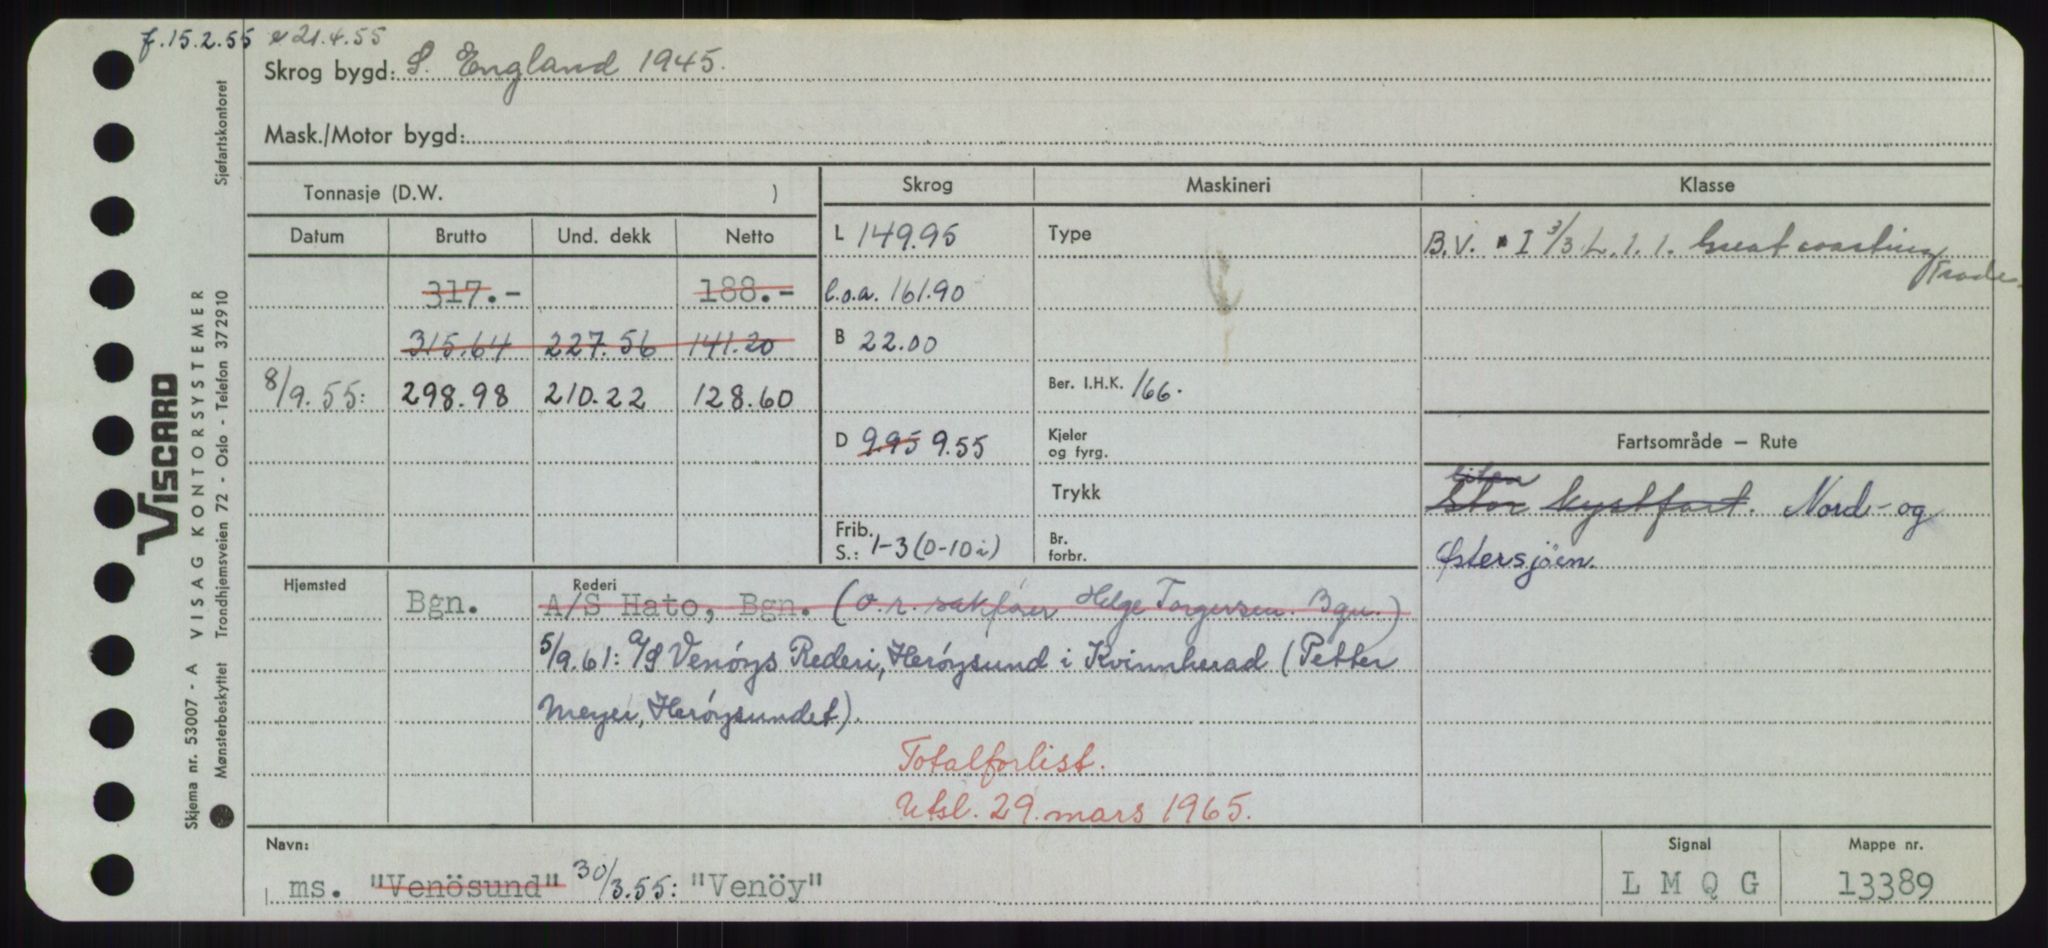 f. 15.2.55 21.4.55
Skrog bygd: S. England 1945.
Mask./Motor bygd:
Tonnasje (D.W. )
Skrog
Maskineri
Klasse
Datum Brutto Und. dekk Netto
L 149.95
Type
B.V. I 3/3 L. 1. 1. Great coasting trade.
317.- 188.-
l.o.a. 161.90
315.64 227.56 141.20
B 22.00
8/9.55: 298.98 210.22 128.60
Ber. I.H.K. 166.
D 9.95 9.55
Kjeler
og fyrg.
Fartsområde — Rute
liten
Trykk
Stor kystfart. Nord- og
Østersjöen.
Frib.
S.: 1-3 (0-10 i)
Br.
forbr.
Hjemsted
Rederi
Bgn. A/S Hato, Bgn. (o.r. sakfører Helge Torgersen. Bgn.)
5/9.61: A/S Venöys Rederi, Heröysund i Kvinnherad (Petter
Meyer, Heröysundet).
Totalforlist.
Utsl. 29. mars 1965.
Navn:
Signal
Mappe nr.
ms. "Venösund" 30/3.55: "Venöy"
L M Q G
13389
VISCARD
Skjema nr. 53007 - A VISAG KONTORSYSTEMER
Mønsterbeskyttet Trondhjemsveien 72 - Oslo - Telefon 372910 Sjøfartskontoret